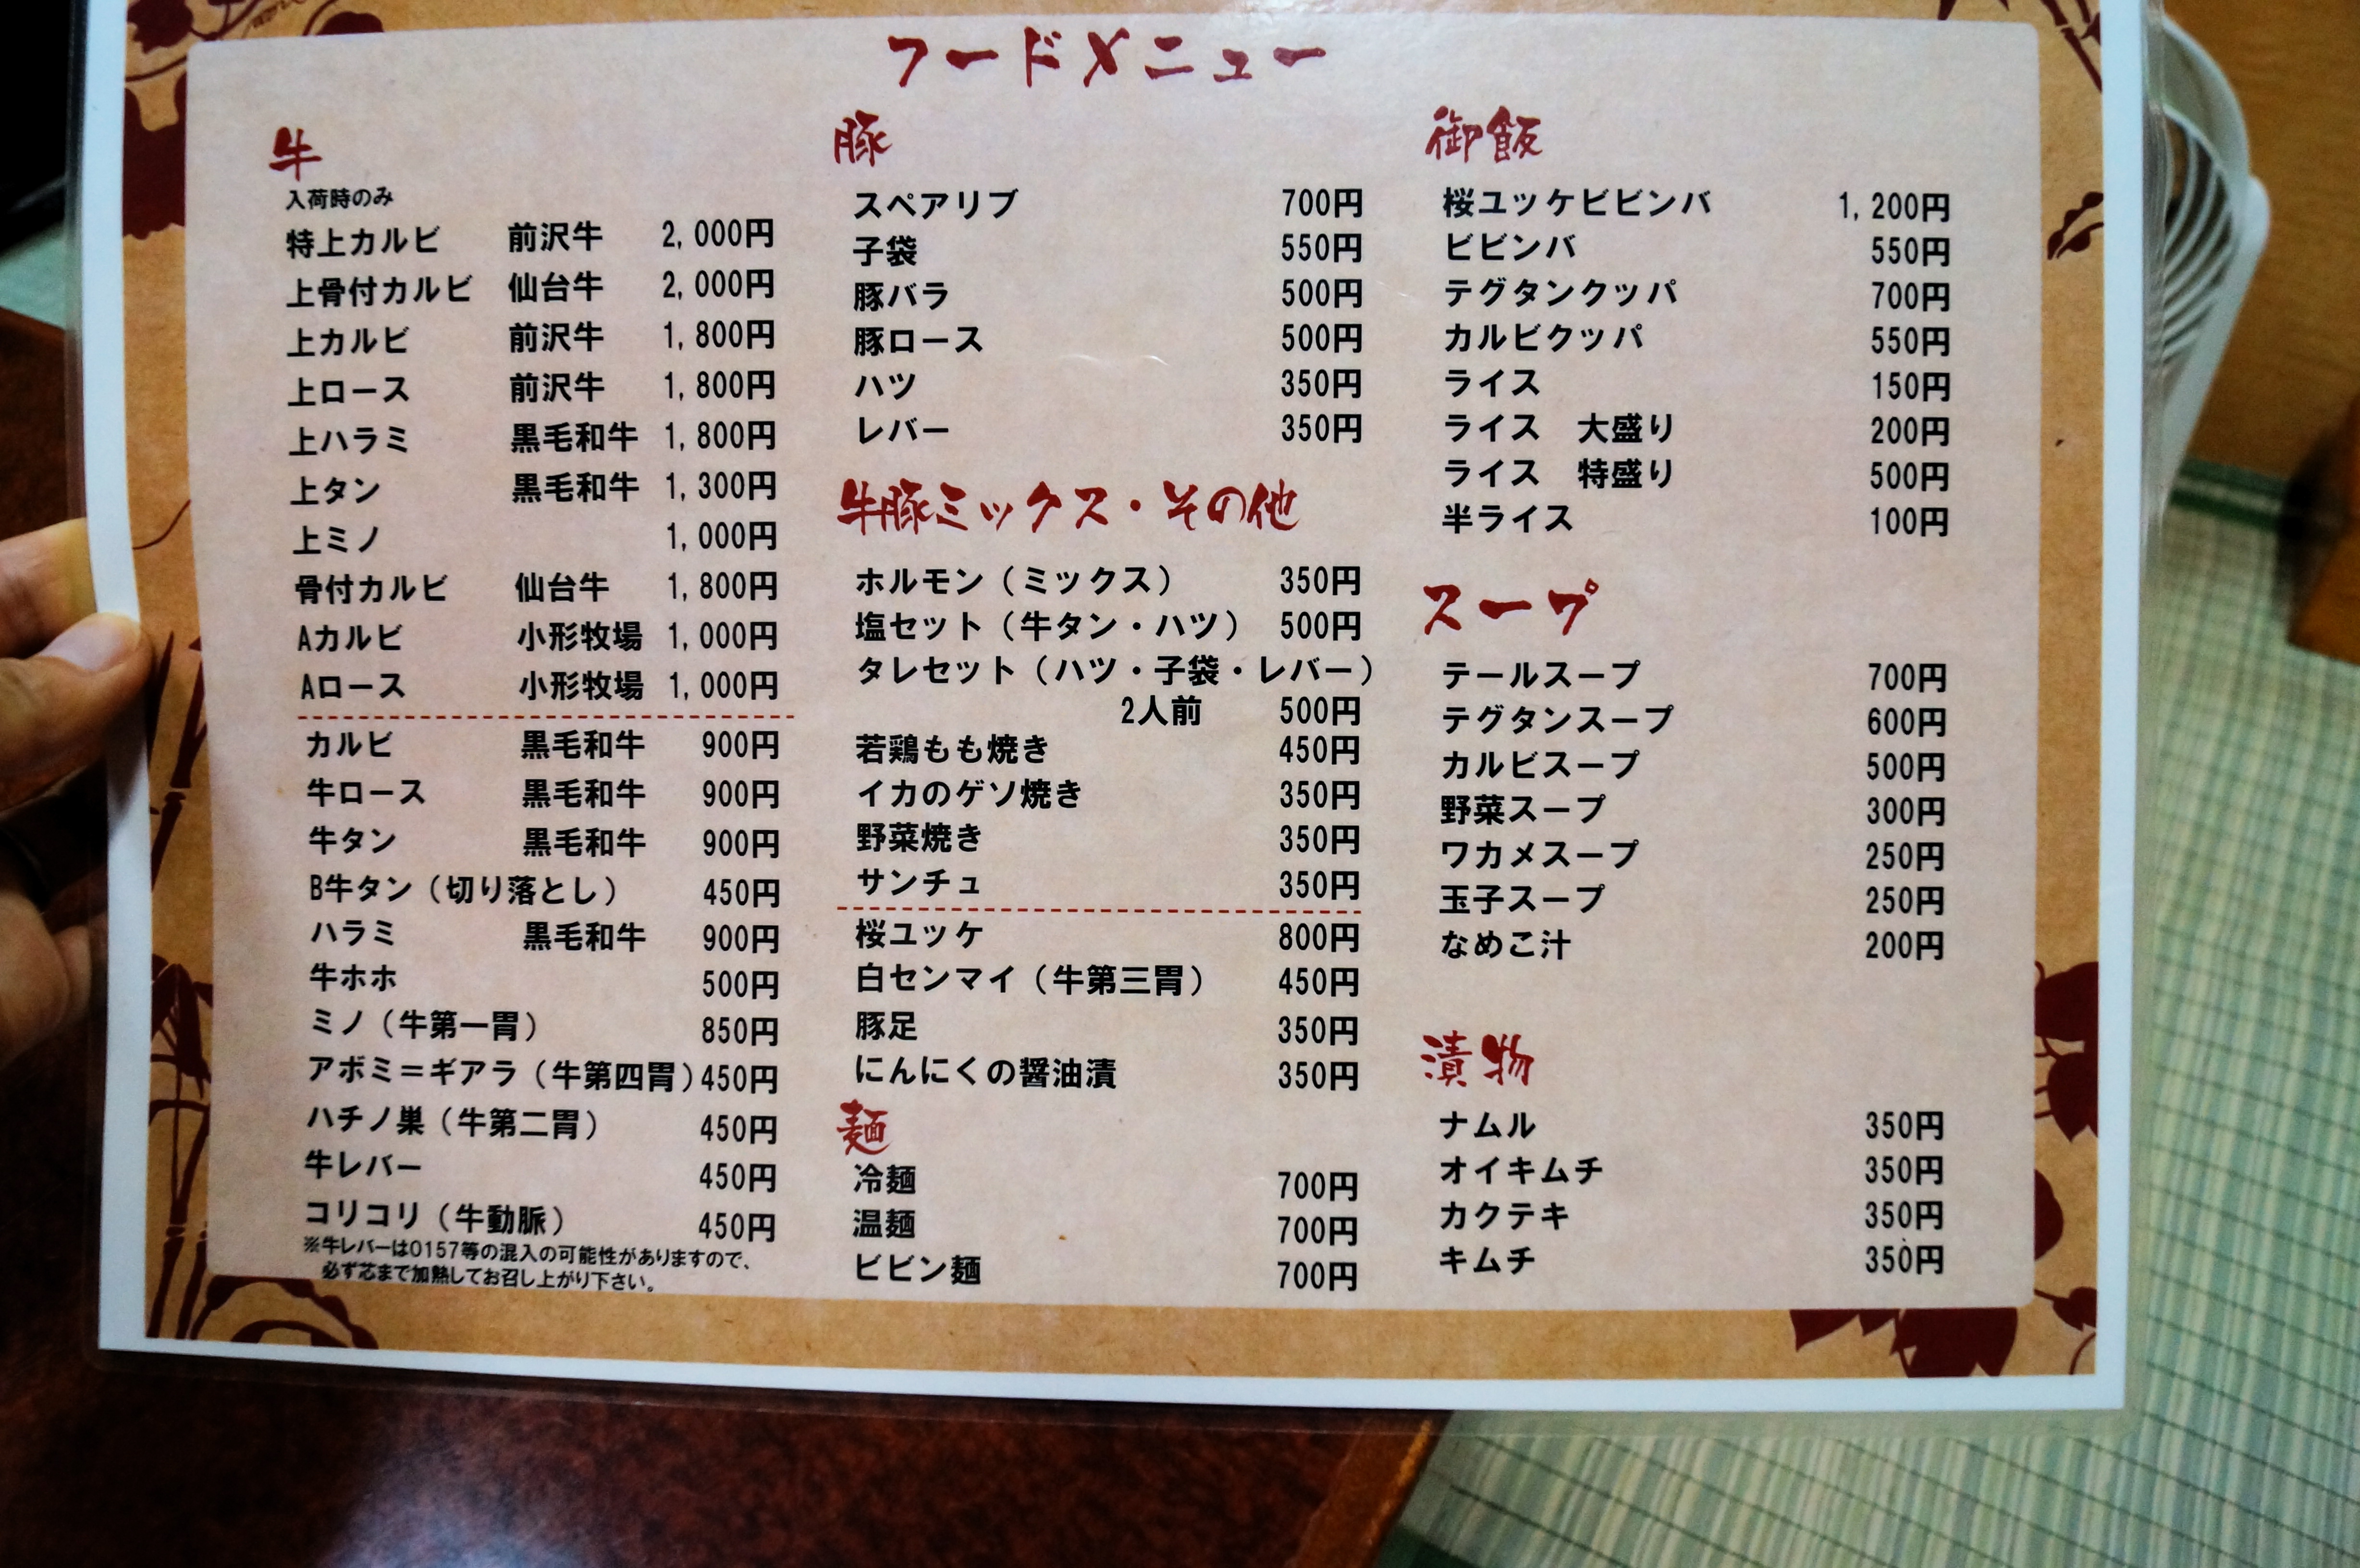 フードメニュー
牛
入荷時のみ
特上カルビ 前沢牛 2,000円
上骨付カルビ 仙台牛 2,000円
上カルビ 前沢牛 1,800円
上ロース 前沢牛 1,800円
上ハラミ 黒毛和牛 1,800円
上タン 黒毛和牛 1,300円
上ミノ 1,000円
骨付カルビ 仙台牛 1,800円
Aカルビ 小形牧場 1,000円
Aロース 小形牧場 1,000円
カルビ 黒毛和牛 900円
牛ロース 黒毛和牛 900円
牛タン 黒毛和牛 900円
B牛タン（切り落とし） 450円
ハラミ 黒毛和牛 900円
牛ホホ 500円
ミノ（牛第一胃） 850円
アボミ＝ギアラ（牛第四胃） 450円
ハチノ巣（牛第二胃） 450円
牛レバー 450円
コリコリ（牛動脈） 450円
※牛レバーはO157等の混入の可能性がありますので、
必ず芯まで加熱してお召し上がり下さい。
豚
スペアリブ 700円
子袋 550円
豚バラ 500円
豚ロース 500円
ハツ 350円
レバー 350円
牛豚ミックス・その他
ホルモン（ミックス） 350円
塩セット（牛タン・ハツ） 500円
タレセット（ハツ・子袋・レバー）
2人前 500円
若鶏もも焼き 450円
イカのゲソ焼き 350円
野菜焼き 350円
サンチュ 350円
桜ユッケ 800円
白センマイ（牛第三胃） 450円
豚足 350円
にんにくの醤油漬 350円
麺
冷麺 700円
温麺 700円
ビビン麺 700円
御飯
桜ユッケビビンバ 1,200円
ビビンバ 550円
テグタンクッパ 700円
カルビクッパ 550円
ライス 150円
ライス 大盛り 200円
ライス 特盛り 500円
半ライス 100円
スープ
テールスープ 700円
テグタンスープ 600円
カルビスープ 500円
野菜スープ 300円
ワカメスープ 250円
玉子スープ 250円
なめこ汁 200円
漬物
ナムル 350円
オイキムチ 350円
カクテキ 350円
キムチ 350円